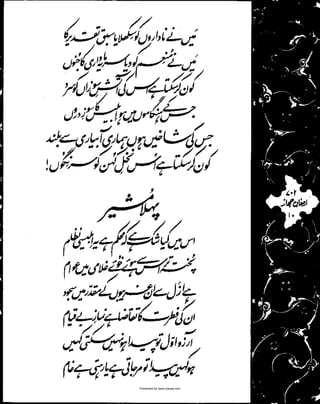 میں نے ناداروں کو سکھلایا سبق تقدیر کا
میں نے منعم کو دیا سرمایہ داری کا جنوں
کون کر سکتا ہے اس کی آتشِ سوزاں کو سرد
جس کے ہنگاموں میں ہو ابلیس کا سوزِ دروں
جس کی شاخیں ہوں ہماری آبیاری سے بلند
کون کر سکتا ہے اس نخلِ کہن کو سرنگوں!
پہلا مشیر
اس میں کیا شک ہے کہ محکم ہے یہ ابلیسی نظام
پختہ تر اس سے ہوئے خوئے غلامی میں عوام
ہے ازل سے ان غریبوں کے مقدر میں سجود
ان کی فطرت کا تقاضا ہے نمازِ بے قیام
آرزو اول تو پیدا ہو نہیں سکتی کہیں
ہو کہیں پیدا تو مر جاتی ہے یا رہتی ہے خام
۷۰۲
ارمغان حجاز
۱۰
Presented by www.ziaraat.com